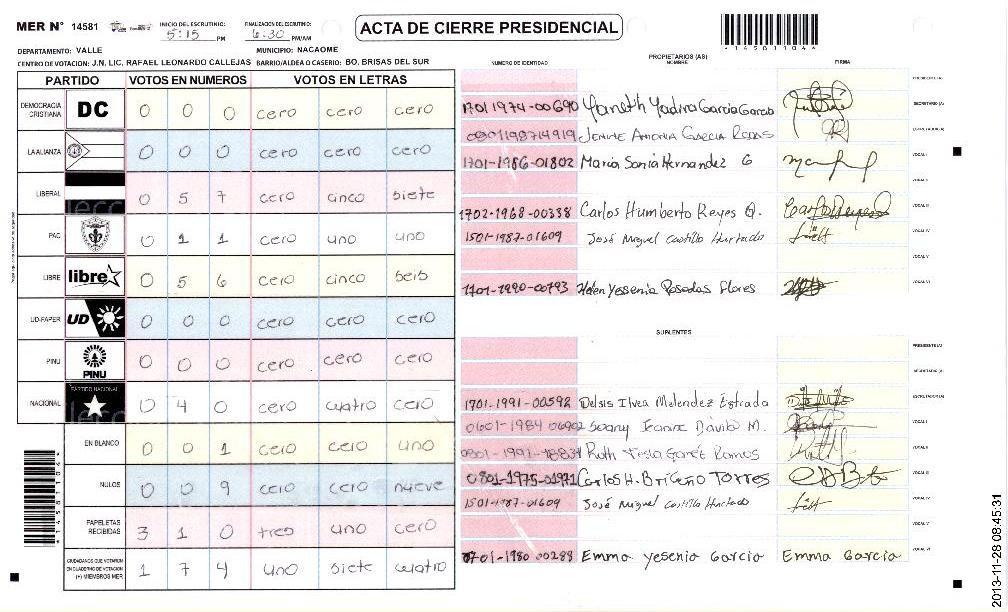 MER N° 14581 INICIO DEL ESCRUTINIO: 5:15 PM FINALIZACION DEL ESCRUTINIO: 6:30 PM/AM
ACTA DE CIERRE PRESIDENCIAL
*1458110441*
DEPARTAMENTO: VALLE MUNICIPIO: NACAOME
CENTRO DE VOTACION: J.N. LIC. RAFAEL LEONARDO CALLEJAS BARRIO/ALDEA O CASERIO: BO. BRISAS DEL SUR
PARTIDO VOTOS EN NUMEROS VOTOS EN LETRAS
DEMOCRACIA CRISTIANA DC 0 0 0 cero cero cero
LA ALIANZA 0 0 0 cero cero cero
LIBERAL 0 5 7 cero cinco siete
PAC 0 1 1 cero uno uno
LIBRE libre 0 5 6 cero cinco seis
UD-FAPER UD 0 0 0 cero cero cero
PINU PINU 0 0 0 cero cero cero
NACIONAL PARTIDO NACIONAL 0 4 0 cero cuatro cero
EN BLANCO 0 0 1 cero cero uno
NULOS 0 0 9 cero cero nueve
PAPELETAS RECIBIDAS 3 1 0 tres uno cero
CIUDADANOS QUE VOTARON EN CUADERNO DE VOTACION (+) MIEMBROS MER 1 7 4 uno siete cuatro
PROPIETARIOS (AS)
NUMERO DE IDENTIDAD NOMBRE FIRMA
PRESIDENTE (A)
1701 1974-00690 Yaneth Yadira Garcia Garcia SECRETARIO (A)
Jenne Antonia Garcia Rodas ESCRUTADOR (A)
1701-1986-01802 Maria Sonia Hernandez G VOCAL I
VOCAL II
1702-1968-00338 Carlos Humberto Reyes Q. VOCAL III
1501-1987-01609 José Miguel Castillo Hurtado VOCAL IV
VOCAL V
1701-1990-00793 Helen Yessenia Posadas Flores VOCAL VI
SUPLENTES
PRESIDENTE (A)
SECRETARIO (A)
1701-1991-00592 Delsis Ilvea Melendez Estrada ESCRUTADOR (A)
0601-1984 Jeanne Davila M. VOCAL I
Ruth Ramos VOCAL II
0801-1975-01971 Carlos H. Briceño Torres VOCAL III
1501-1987-01609 José Miguel Castillo Hurtado VOCAL IV
VOCAL V
0701-1980 00288 Emma Yesenia Garcia Emma Garcia VOCAL VI
2013-11-28 08:45:31